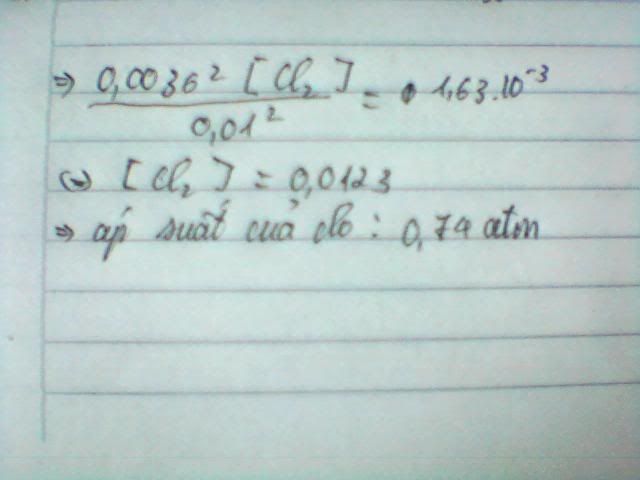 => 0,0036² [Cl₂] / 0,01² = 1,63.10⁻³
<=> [Cl₂] = 0,0123
=> áp suất của clo : 0,74 atm